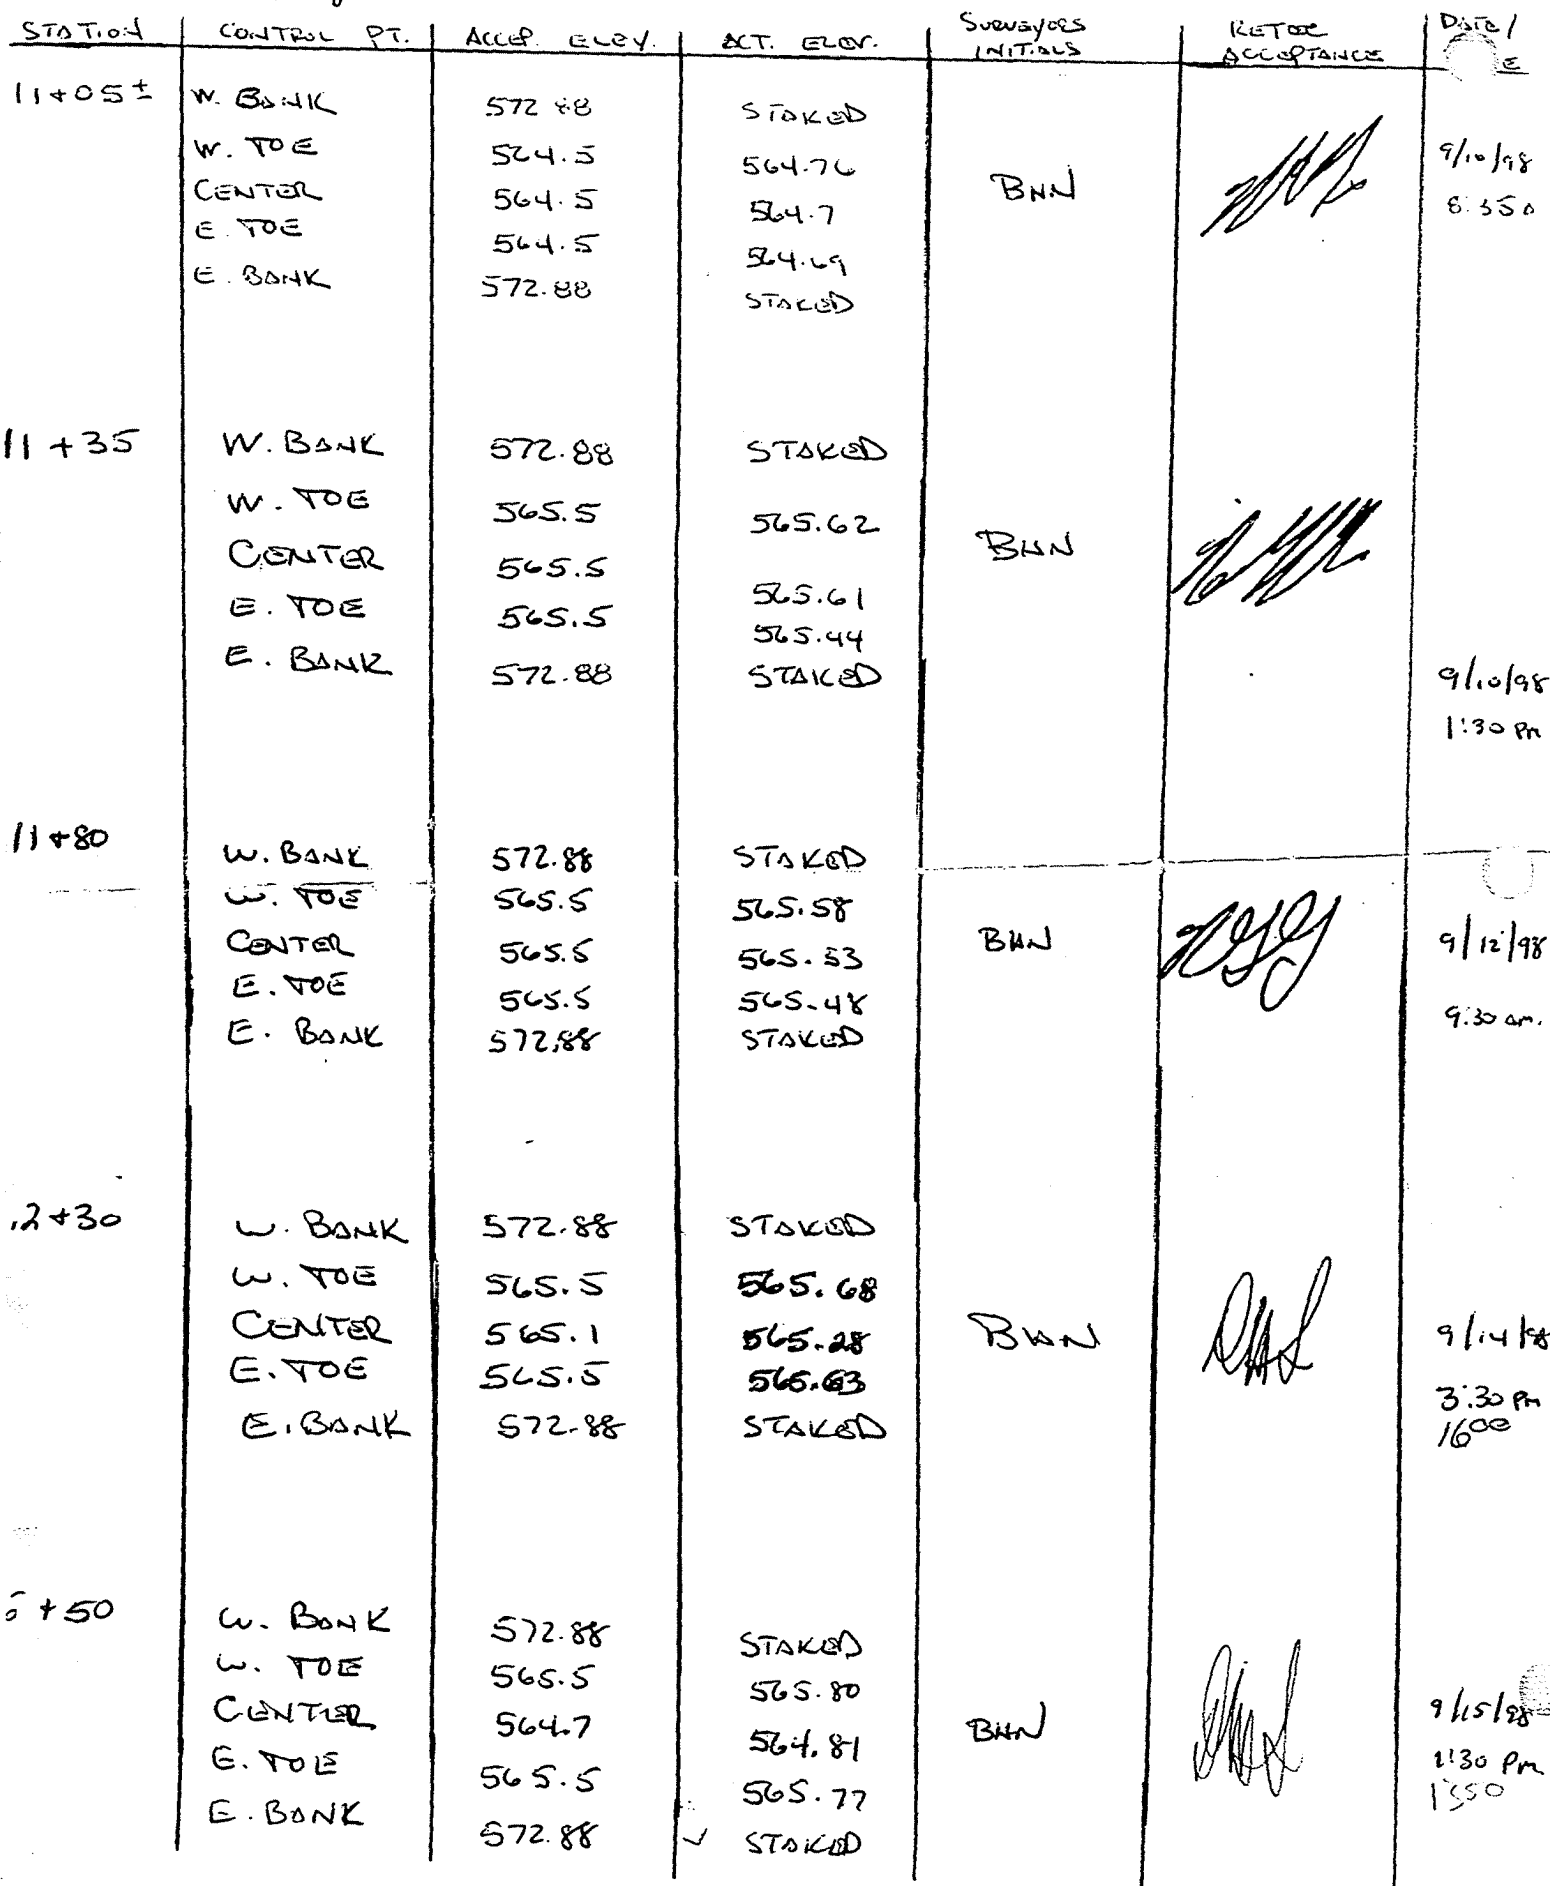 STATION CONTROL PT. ACCEP. ELEV. ACT. ELEV. SURVEYORS INITIALS ACCEPTANCE DATE/
11+05± W. BANK 572.88 STAKED
W. TOE 564.5 564.76 9/10/98
CENTER 564.5 564.7 BHN
E. TOE 564.5 564.69
E. BANK 572.88 STAKED
11+35 W. BANK 572.88 STAKED
W. TOE 565.5 565.62
CENTER 565.5 565.61 BHN
E. TOE 565.5 565.44
E. BANK 572.88 STAKED 9/10/98
1:30 PM
11+80 W. BANK 572.88 STAKED
W. TOE 565.5 565.58
CENTER 565.5 565.53 BHN 9/12/98
E. TOE 565.5 565.48
E. BANK 572.88 STAKED 9:30 AM.
12+30 W. BANK 572.88 STAKED
W. TOE 565.5 565.68
CENTER 565.1 565.28 BHN 9/14/98
E. TOE 565.5 565.63 3:30 PM
E. BANK 572.88 STAKED 1600
+50 W. BANK 572.88 STAKED
W. TOE 565.5 565.80
CENTER 564.7 564.81 BHN 9/15/98
E. TOE 565.5 565.77 1:30 PM
E. BANK 572.88 STAKED 1350